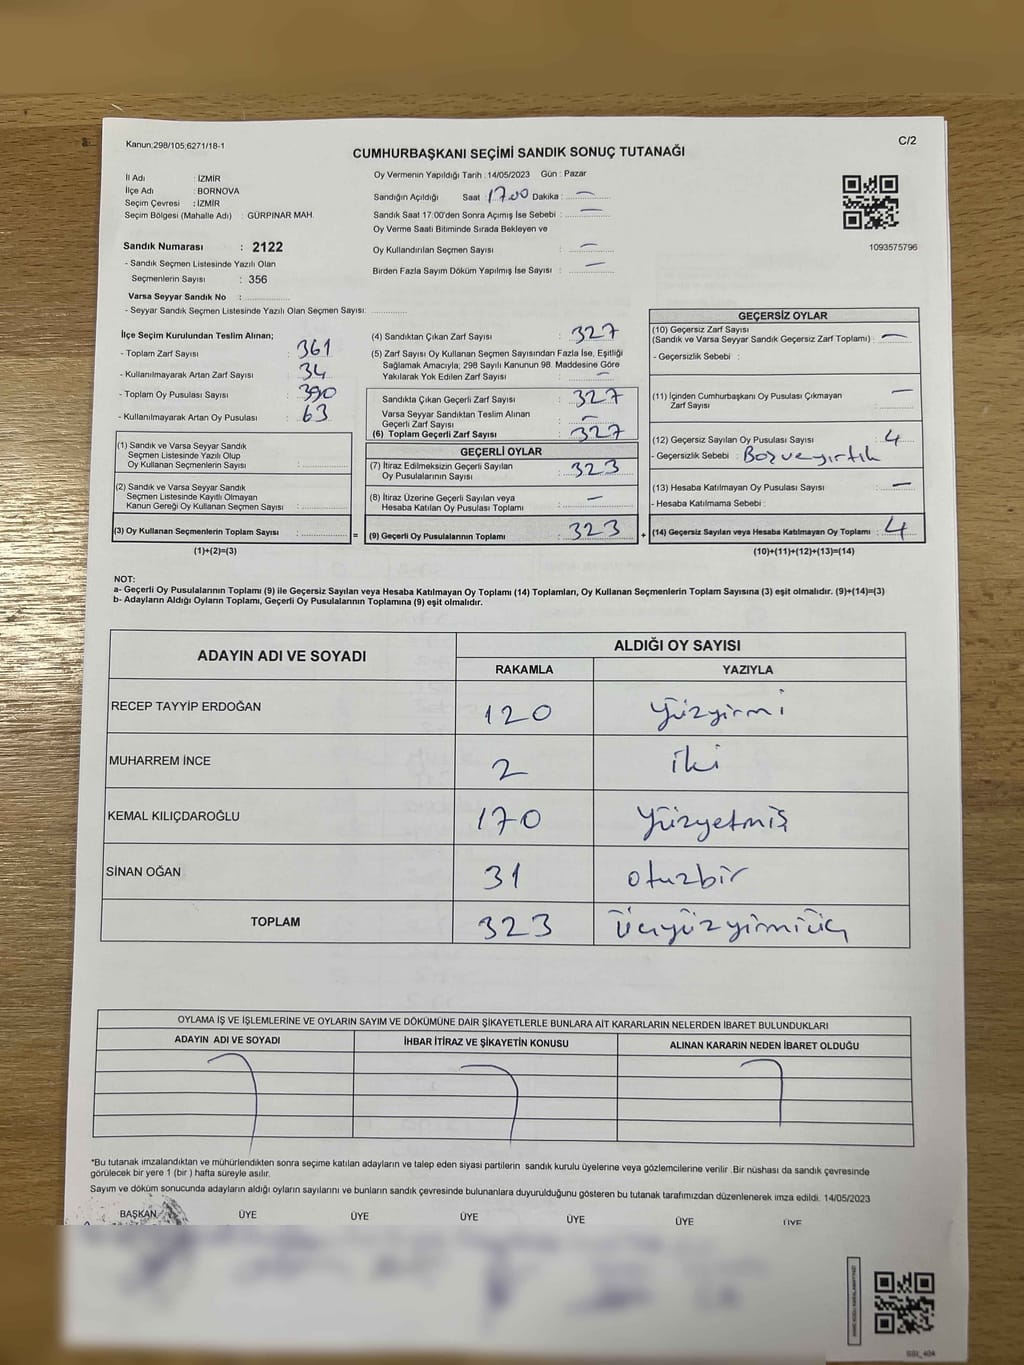 Kanun;298/105;6271/18-1
C/2
CUMHURBAŞKANI SEÇİMİ SANDIK SONUÇ TUTANAĞI
İl Adı : İZMİR
İlçe Adı : BORNOVA
Seçim Çevresi : İZMİR
Seçim Bölgesi (Mahalle Adı) : GÜRPINAR MAH.
Sandık Numarası : 2122
- Sandık Seçmen Listesinde Yazılı Olan
Seçmenlerin Sayısı : 356
Varsa Seyyar Sandık No :
- Seyyar Sandık Seçmen Listesinde Yazılı Olan Seçmen Sayısı:
Oy Vermenin Yapıldığı Tarih : 14/05/2023 Gün : Pazar
Sandığın Açıldığı Saat 17.00 Dakika : —
Sandık Saat 17:00'den Sonra Açımış İse Sebebi : —
Oy Verme Saati Bitiminde Sırada Bekleyen ve
Oy Kullandırılan Seçmen Sayısı : —
Birden Fazla Sayım Döküm Yapılmış İse Sayısı : —
1093575796
İlçe Seçim Kurulundan Teslim Alınan;
- Toplam Zarf Sayısı : 361
- Kullanılmayarak Artan Zarf Sayısı : 34
- Toplam Oy Pusulası Sayısı : 390
- Kullanılmayarak Artan Oy Pusulası : 63
(1) Sandık ve Varsa Seyyar Sandık
Seçmen Listesinde Yazılı Olup
Oy Kullanan Seçmenlerin Sayısı :
(2) Sandık ve Varsa Seyyar Sandık
Seçmen Listesinde Kayıtlı Olmayan
Kanun Gereği Oy Kullanan Seçmen Sayısı :
(3) Oy Kullanan Seçmenlerin Toplam Sayısı :
(1)+(2)=(3)
(4) Sandıktan Çıkan Zarf Sayısı : 327
(5) Zarf Sayısı Oy Kullanan Seçmen Sayısından Fazla İse, Eşitliği
Sağlamak Amacıyla; 298 Sayılı Kanunun 98. Maddesine Göre
Yakılarak Yok Edilen Zarf Sayısı : —
Sandıkta Çıkan Geçerli Zarf Sayısı : 327
Varsa Seyyar Sandıktan Teslim Alınan
Geçerli Zarf Sayısı : —
(6) Toplam Geçerli Zarf Sayısı : 327
GEÇERLİ OYLAR
(7) İtiraz Edilmeksizin Geçerli Sayılan
Oy Pusulalarının Sayısı : 323
(8) İtiraz Üzerine Geçerli Sayılan veya
Hesaba Katılan Oy Pusulası Toplamı : —
= (9) Geçerli Oy Pusulalarının Toplamı : 323
GEÇERSİZ OYLAR
(10) Geçersiz Zarf Sayısı
(Sandık ve Varsa Seyyar Sandık Geçersiz Zarf Toplamı) : —
- Geçersizlik Sebebi :
(11) İçinden Cumhurbaşkanı Oy Pusulası Çıkmayan
Zarf Sayısı : —
(12) Geçersiz Sayılan Oy Pusulası Sayısı : 4
- Geçersizlik Sebebi : Boş ve yırtık
(13) Hesaba Katılmayan Oy Pusulası Sayısı : —
- Hesaba Katılmama Sebebi :
+ (14) Geçersiz Sayılan veya Hesaba Katılmayan Oy Toplamı : 4
(10)+(11)+(12)+(13)=(14)
NOT:
a- Geçerli Oy Pusulalarının Toplamı (9) ile Geçersiz Sayılan veya Hesaba Katılmayan Oy Toplamı (14) Toplamları, Oy Kullanan Seçmenlerin Toplam Sayısına (3) eşit olmalıdır. (9)+(14)=(3)
b- Adayların Aldığı Oyların Toplamı, Geçerli Oy Pusulalarının Toplamına (9) eşit olmalıdır.
ADAYIN ADI VE SOYADI
ALDIĞI OY SAYISI
RAKAMLA YAZIYLA
RECEP TAYYİP ERDOĞAN 120 Yüzyirmi
MUHARREM İNCE 2 iki
KEMAL KILIÇDAROĞLU 170 Yüzyetmiş
SİNAN OĞAN 31 otuzbir
TOPLAM 323 Üçyüzyirmiüç
OYLAMA İŞ VE İŞLEMLERİNE VE OYLARIN SAYIM VE DÖKÜMÜNE DAİR ŞİKAYETLERLE BUNLARA AİT KARARLARIN NELERDEN İBARET BULUNDUKLARI
ADAYIN ADI VE SOYADI İHBAR İTİRAZ VE ŞİKAYETİN KONUSU ALINAN KARARIN NEDEN İBARET OLDUĞU
*Bu tutanak imzalandıktan ve mühürlendikten sonra seçime katılan adayların ve talep eden siyasi partilerin sandık kurulu üyelerine veya gözlemcilerine verilir .Bir nüshası da sandık çevresinde
görülecek bir yere 1 (bir ) hafta süreyle asılır.
Sayım ve döküm sonucunda adayların aldığı oyların sayılarını ve bunların sandık çevresinde bulunanlara duyurulduğunu gösteren bu tutanak tarafımızdan düzenlenerek imza edildi. 14/05/2023
BAŞKAN ÜYE ÜYE ÜYE ÜYE ÜYE ÜYE